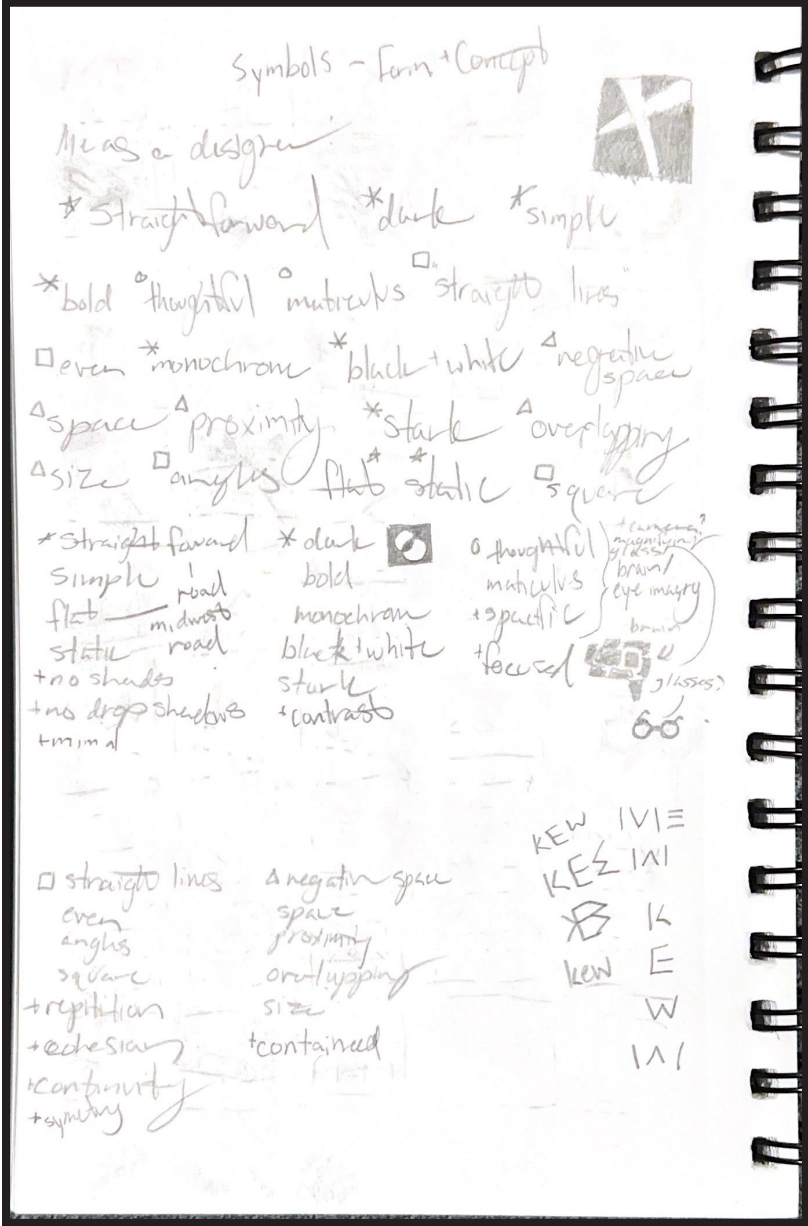 Symbols - Form + Concept
Me as a designer
* straightforward * dark * simple
* bold ○ thoughtful ○ maticulus □ "straight lines"
□ even * monochrome * black + white △ negative space
△ space △ proximity * stark △ overlapping
△ size □ angles * flat * static □ square
* straight forward
simple
flat — midwest
road
road
static
+ no shades
+ no drop shadows
* dark
bold
monochrom
black + white
stark
+ contrast
○ thoughtful
maticulus
+ spacific
+ focused
+ camera?
magnifying
glass/
brain/
eye imagry
brain
glasses?
□ straight lines
even
angles
square
+ repitition
+ cohesian
+ continuity
+ symetry
△ negative space
space
proximity
overlapping
size
+ contained
KEW
KEΣ
kew
K
E
W